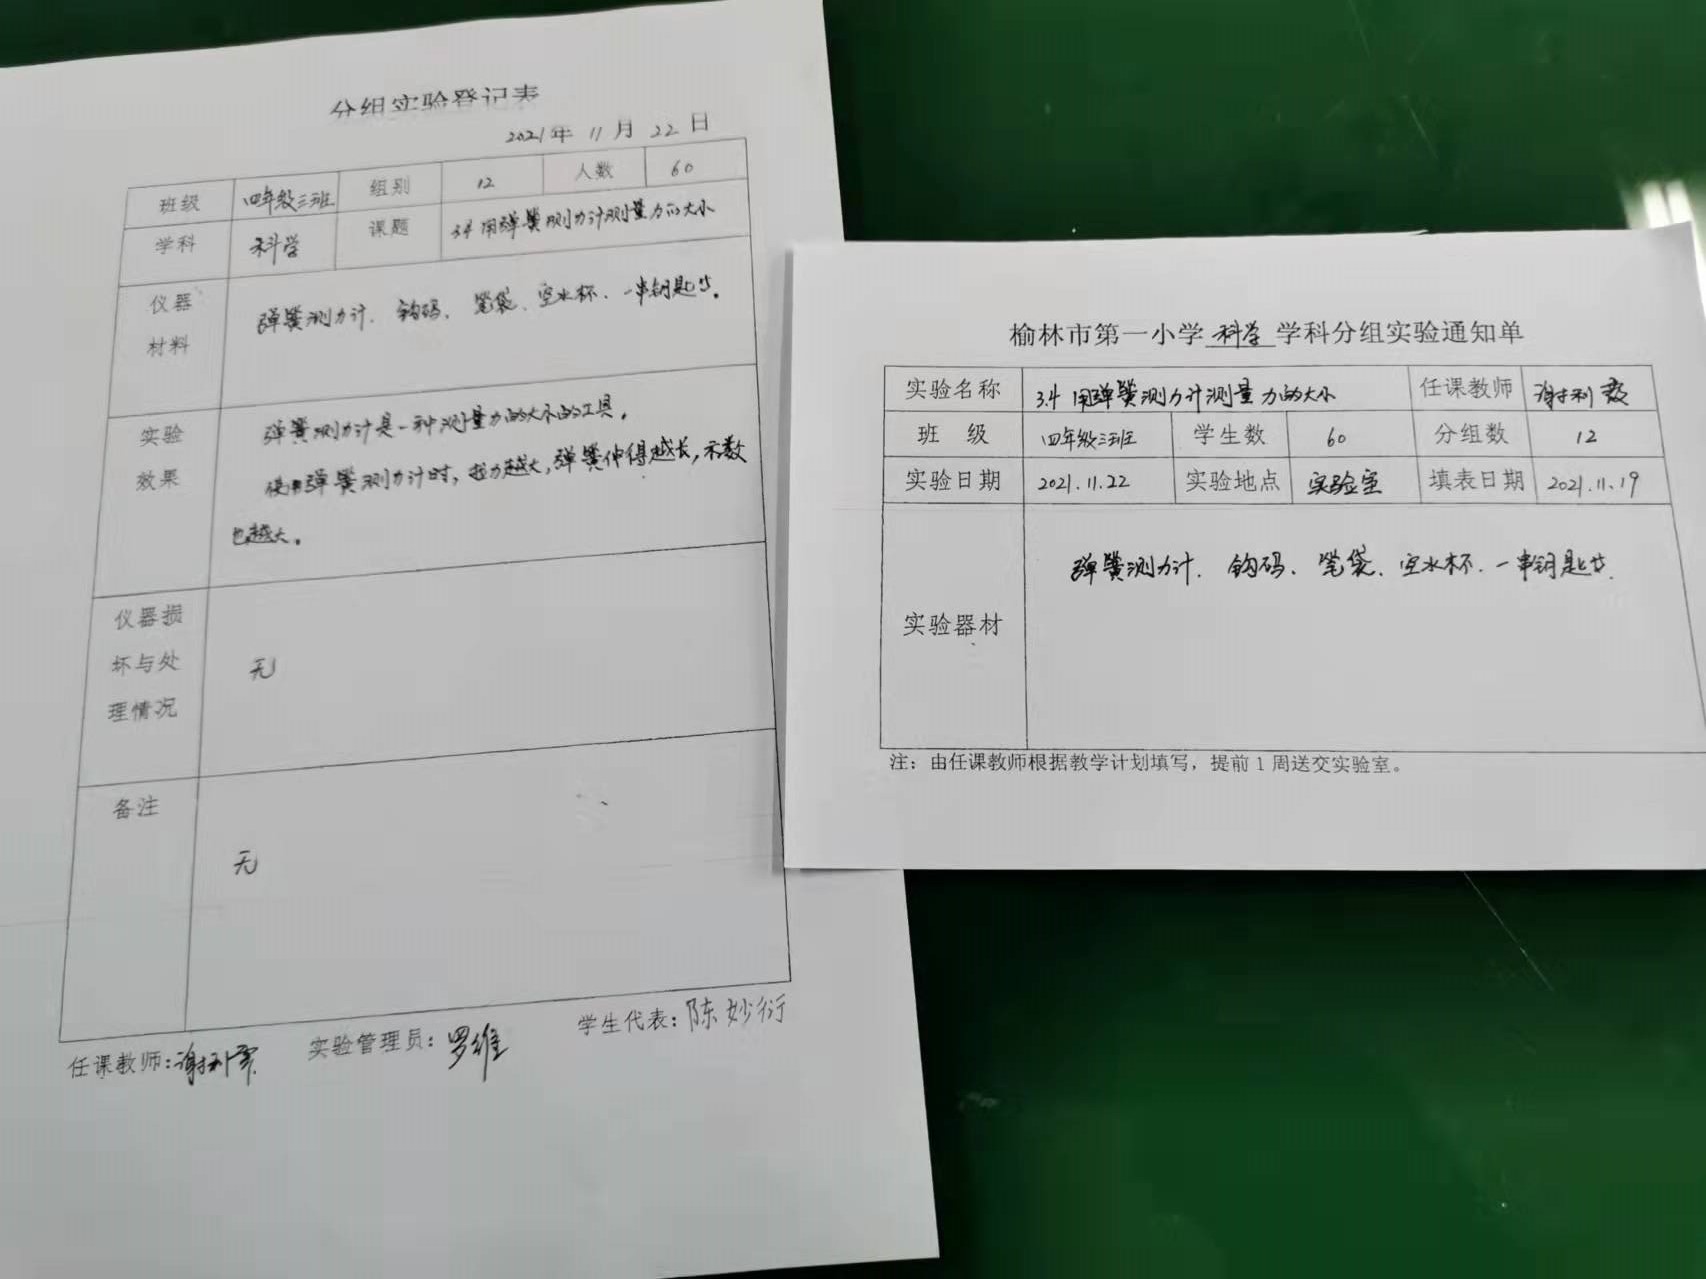 分组实验登记表
2021年 11月 22日
班级 四年级三班 组别 12 人数 60
学科 科学 课题 3.4 用弹簧测力计测量力的大小
仪器
材料
弹簧测力计、钩码、笔袋、空水杯、一串钥匙等。
实验
效果
弹簧测力计是一种测量力的大小的工具。
使用弹簧测力计时,拉力越大,弹簧伸得越长,示数
也越大。
仪器损
坏与处
理情况
无
备注
无
任课教师:谢利 实验管理员:罗维 学生代表:陈妙衍
榆林市第一小学 科学 学科分组实验通知单
实验名称 3.4 用弹簧测力计测量力的大小 任课教师 谢利
班 级 四年级三班 学生数 60 分组数 12
实验日期 2021.11.22 实验地点 实验室 填表日期 2021.11.19
实验器材
弹簧测力计、钩码、笔袋、空水杯、一串钥匙等.
注:由任课教师根据教学计划填写,提前1周送交实验室。